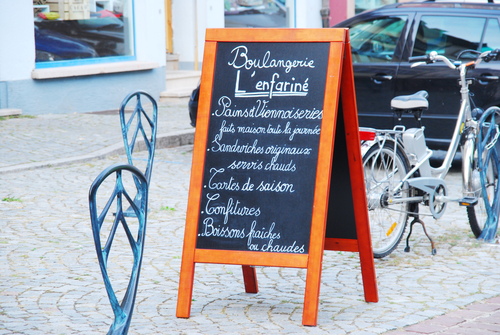 Boulangerie
L'enfariné
. Pains & Viennoiseries
faits maison toute la journée
. Sandwiches originaux
servis chauds
. Tartes de saison
. Confitures
. Boissons fraîches
ou chaudes